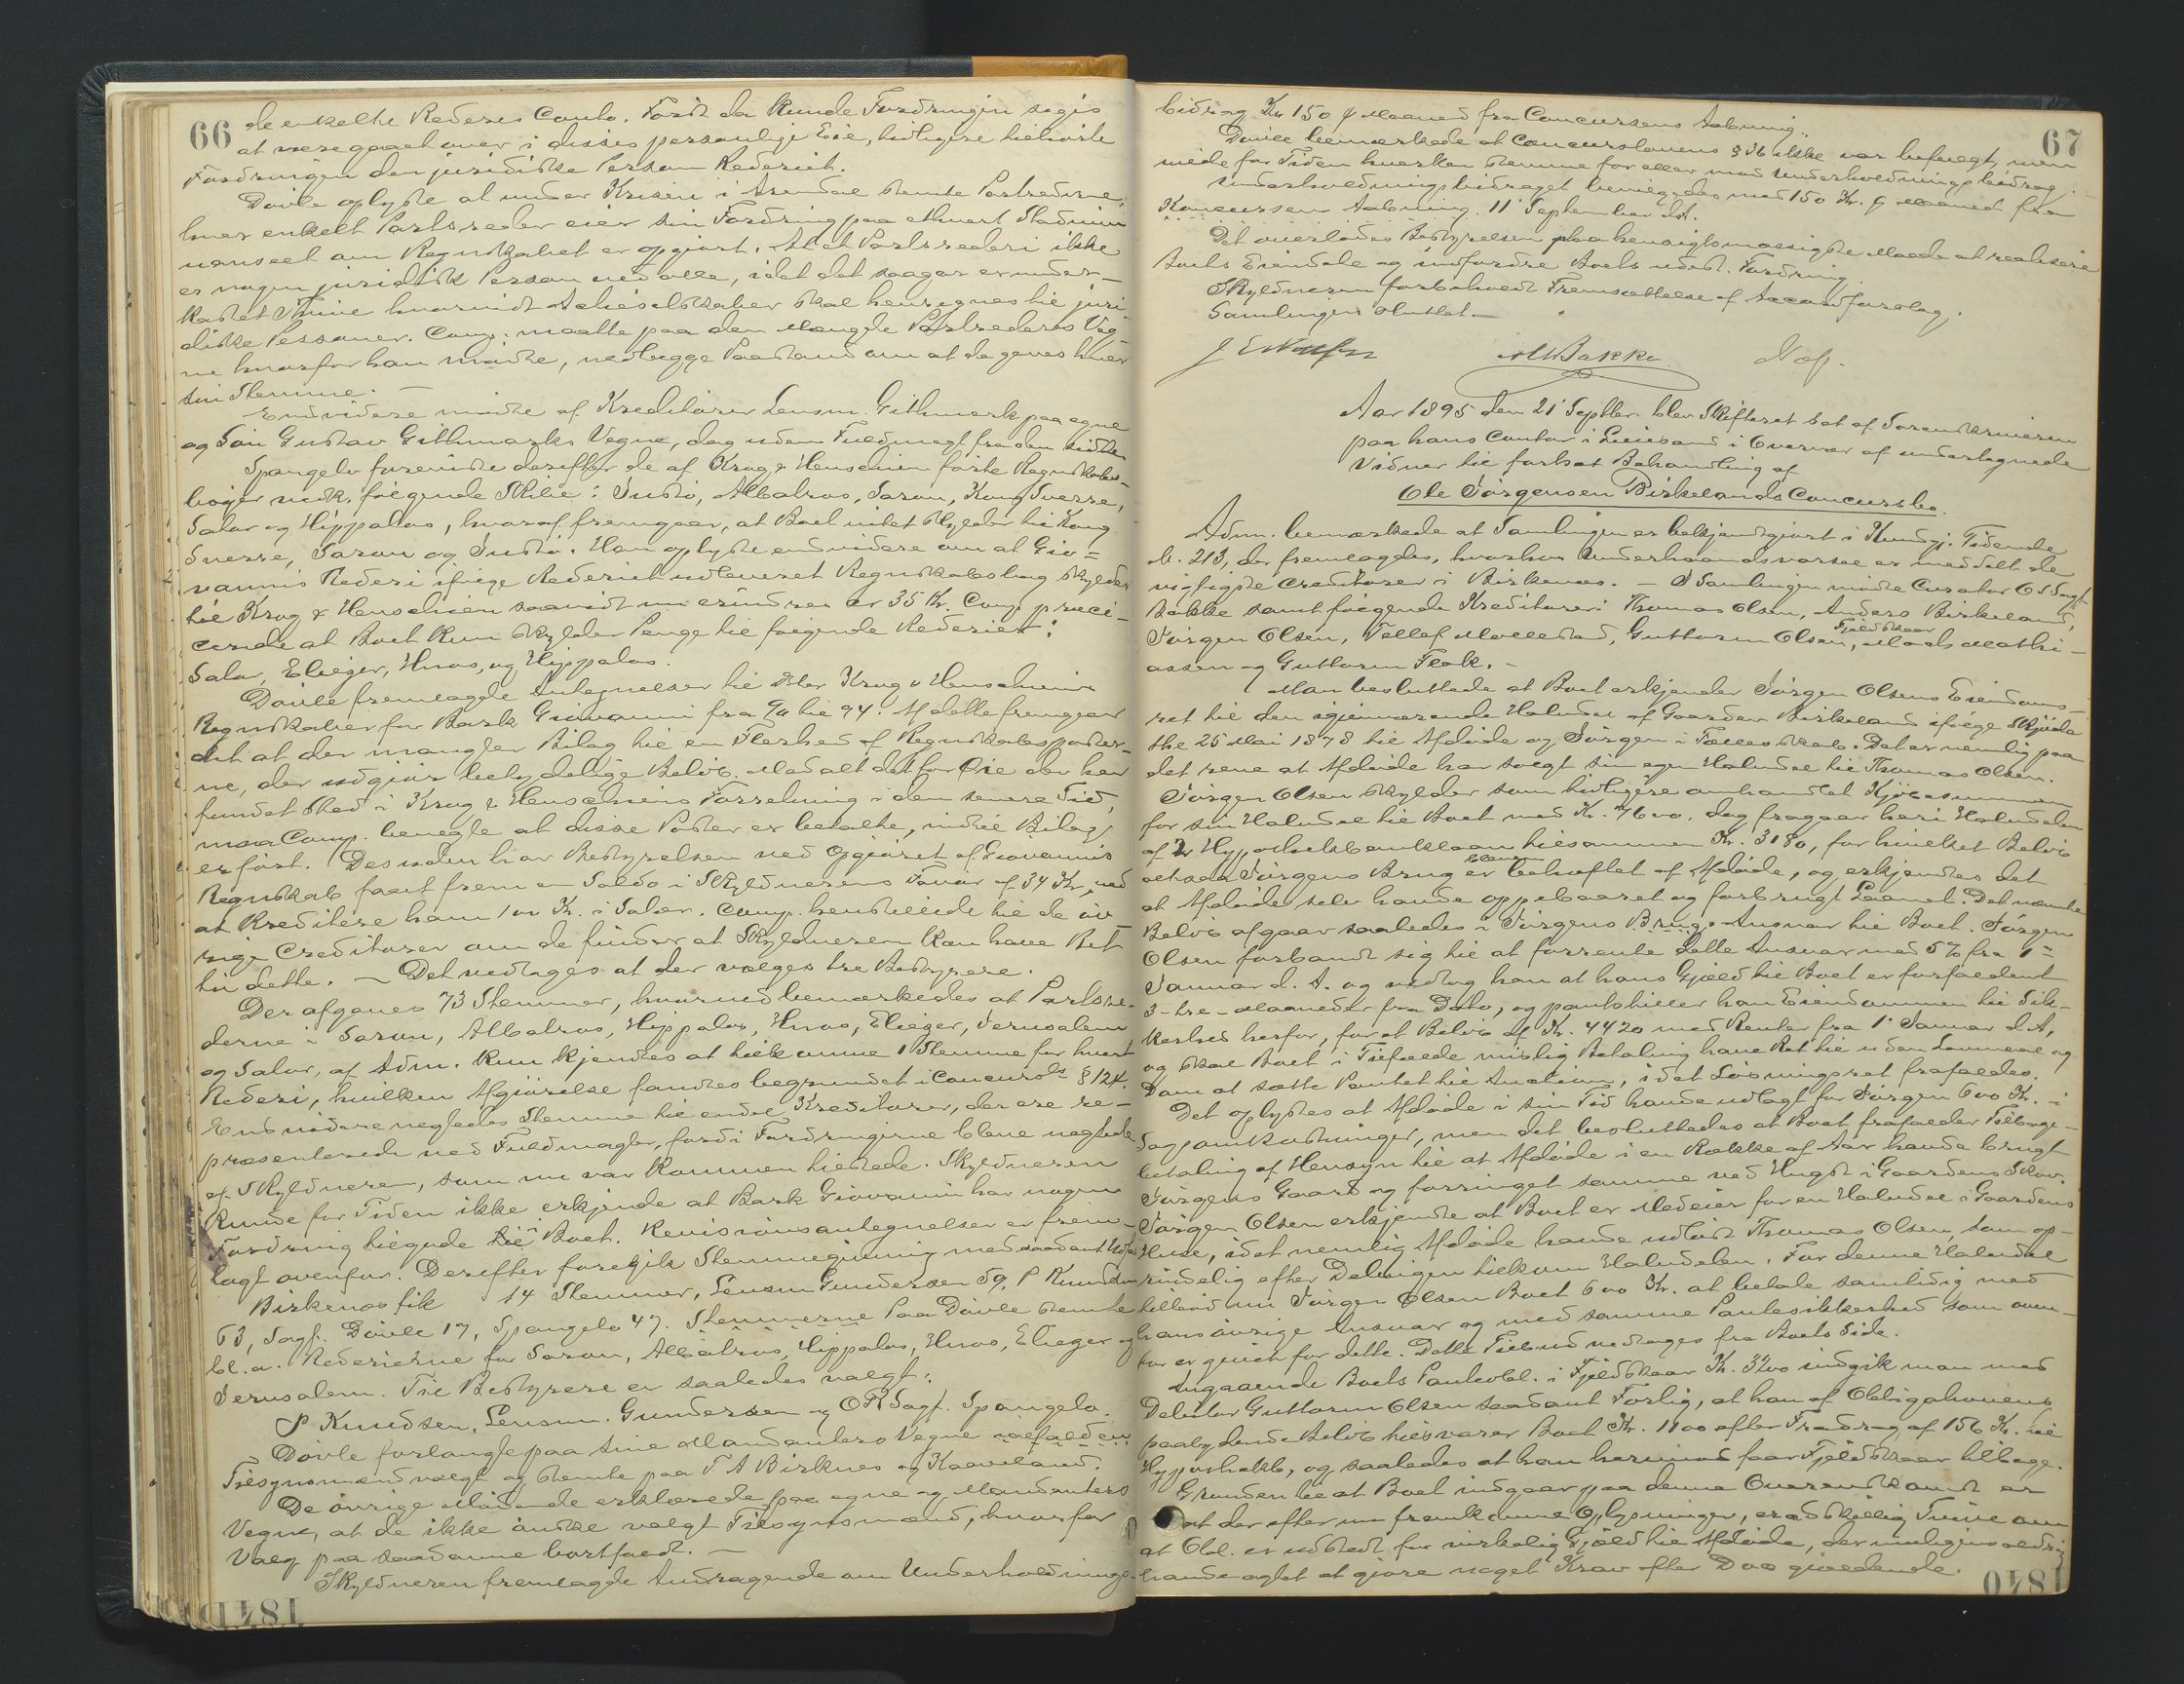 66
de enkelte Rederes Conto. Først da kunde Fordringen siges
at være gaaet over i disses personlige Eie, tidligere tilhørte
Fordringen den juridiske Person Rederiet.
Døvle oplyste at under Krisen i Arendal stemte Partrederne,
hver enkelt Partsreder eier sin Fordring paa ethvert Stadium
uanseet om Regnskabet er opgjort. At et Partsrederi ikke
er nogen juridisk Person ved alle, idet det saagar er under-
kastet Tvivl hvorvidt Actieselskaber skal henregnes til juri-
diske Personer. Comp. maatte paa den Mængde Partrederes Veg-
ne hvorfor han mødte, nedlægge Paastand om at de gaves hver
sin Stemme. —
Endvidere mødte af Kreditorer Lensm. Githmark paa egne
og Søn Gustav Githmarks Vegne, dog uden Fuldmagt fra den sidste
Spangelo foreviste derefter de af Krog & Henschien førte Regnskabs-
bøger vedk. følgende Skibe: Indtø, Albatros, Saron, Kong Sverre,
Salar og Hippalos, hvoraf fremgaar, at Boet intet skylder til Kong
Sverre, Saron og Indtø. Han oplyste endvidere om at Gio-
vannis Rederi ifølge Rederiets udleveret Regnskabsbog skylder
til Krog & Henschien saavidt nu erindres er 35 Kr. Comp. præci-
cerede at Boet kun skylder Penge til følgende Rederier:
Salar, Elieser, Hvos, og Hippalos.
Døvle fremlagde Antegnelser til Krog & Henschiens
Regnskaber for Bark Giovanni fra 90 til 94. Af dette fremgaar
det at der mangler Bilag til en Flerhed af Regnskabsposter-
ne, der udgjør betydelige Beløb. Med alt det for Øie der har
fundet Sted i Krog & Henschiens Forretning i den senere Tid,
maa Comp. benegte at disse Poster er betalte, indtil Bilag
er ført. Desuden har Bestyrelsen ved Opgjøret af Giovannis
Regnskab faaet frem en Saldo i Skyldnerens Favør af 34 Kr, ved
at kreditere ham 100 Kr. i Salær. Comp. henstillede til de øv-
rige Creditorer om de finder at Skyldneren kan have Ret
til dette. — Det vedtages at der vælges tre Bestyrere.
Der afgaves 73 Stemmer, hvorved bemærkedes at Partsre-
derne i Saron, Albatros, Hippalos, Hvos, Elieser, Jerusalem
og Salar, af Adm. kun kjendtes at tilkomme 1 Stemme for hvert
Rederi, hvilken Afgjørelse fandtes begrundet i Concursls § 124.
Endvidere negtedes Stemme til endel Kreditorer, der ere re-
præsenterede ved Fuldmagter, fordi Fordringerne bleve negtede
af Skyldneren, som nu var kommen tilstede. Skyldneren
kunde for Tiden ikke erkjende at Bark Giovanni har nogen
Fordring tilgode hos Boet. Revisionsantegnelser er frem-
lagt ovenfor. Derefter foregik Stemmegivning med saadant Udfald
Birkenes fik 14 Stemmer, Lensm Gundersen 59, P Knudsen
63, Sagf. Døvle 17, Spangelo 47. Stemmerne Paa Døvle stemte
bl. a. Rederierne for Saron, Albatros, Hippalos, Hvos, Elieser og
Jerusalem. Til Bestyrere er saaledes valgt:
P Knudsen, Lensm. Gundersen og ORSagf. Spangelo.
Døvle forlangte paa sine Mandanters Vegne
Tilsynsmænd valgt og stemte paa T A Birknes og Kaaveland.
De øvrige Mødende erklærede paa egne og Mandanters
Vegne, at de ikke ønske valgt Tilsynsmænd, hvorfor
Valg paa saadanne bortfaldt. —
Skyldneren fremlagde Andragende om Underholdnings-
1841
67
bidrag Kr 150 p Maaned fra Concursens Aabning.
Døvle bemærkede at Concurslovens § 36 ikke var befulgt, men
vilde for Tiden hverken stemme for eller mod Underholdningsbidrag.
Underholdningsbidraget bevilgedes med 150 Kr. p Maaned fra
Konkursens Aabning. 11 September d.A.
Det overlodes Bestyrelsen paa hensigtsmæssigste Maade at realisere
Boets Eiendele og indfordre Boets udest. Fordring
Skyldneren forbeholdt Fremsættelse af Accordforslag.
Samlingen sluttet. —
MBakke
Aar 1895 den 21 Septbr. blev Skifteret sat af Sorenskriveren
paa hans Contor i Lillesand i Overvær af undertegnede
Vidner til fortsat Behandling af
Ole Jörgensen Birkelands Concursbo.
Adm. bemærkede at Samlingen er bekjendtgjort i Kundgj. Tidende
N. 213, der fremlagdes, hvorhos Underhaandsvarsel er meddelt de
vigtigste Creditorer i Birkenes. — I Samlingen mødte Curator O S Sagf.
Bakke samt følgende Kreditorer: Thomas Olsen, Anders Birkeland,
Jørgen Olsen, Tellef Mollestad, Guttorm Olsen, Fjeldskaar, Mads Mathi-
assen og Guttorm Flak. —
Man besluttede at Boet erkjender Jørgen Olsens Eiendoms-
ret til den igjenværende Halvdel af Gaarden Birkeland ifølge Skjøde
thl 25 Mai 1878 til Afdøde og Jørgen i Fællesskab. Det er nemlig paa
det rene at Afdøde har solgt sin egen Halvdel til Thomas Olsen.
Jörgen Olsen skylder som tidligere omhandlet Kjøbesummen
for sin Halvdel til Boet med Kr. 7600, dog fragaar heri Halvdelen
af 2 Hypothekbanklaan tilsammen Kr. 3180, for hvilket Beløb
ogsaa Jørgens Brug er bleven behæftet af Afdøde, og erkjendtes det
at Afdøde selv havde oppebaaret og forbrugt Laanet. Det nævnte
Beløb afgaar saaledes i Jørgens Brugs Ansvar til Boet. Jörgen
Olsen forbandt sig til at forrente dette Ansvar med 5% fra 1ste
Januar d. A. og vedtog han at hans Gjæld til Boet er forfaldent
3 - tre - Maaneder fra Dato, og pantstiller han Eiendommen til Sik-
kerhed herfor, for et Beløb af Kr. 4420 med Renter fra 1 Januar d.A,
og skal Boet i Tilfælde mislig Betaling have Ret til uden Lovmaal og
Dom at sætte Pantet til Auction, idet Løsningsret frafaldes.
Det oplystes at Afdøde i sin Tid havde udlagt for Jörgen 600 Kr. i
Sagsomkostninger, men det besluttedes at Boet frafalder Tilbage-
betaling af Hensyn til at Afdøde i en Række af Aar havde brugt
Jørgens Gaard og forringet samme ved Hugst i Gaardens Skov.
Jörgen Olsen erkjendte at Boet er Medeier for en Halvdel i Gaardens
Hue, idet nemlig Afdøde havde udløst Thomas Olsen, som op-
rindelig efter Delingen tilkom Halvdelen. For denne Halvdel
tilbød nu Jörgen Olsen Boet 600 Kr. at betale samtidig med
hans øvrige Ansvar og med samme Pantesikkerhed som oven-
for er given for dette. Dette Tilbud vedtages fra Boets Side.
Angaaende Boets Panteobl. i Fjeldskaar Kr. 3200 indgik man med
Debitor Guttorm Olsen saadant Forlig, at han af Obligationens
paalydende Beløb tilsvarer Boet Kr. 1100 efter Fradrag af 156 Kr. til
Hypothekb, og saaledes at han hermed faar Fjeldskaar tilbage.
Grunden til at Boet indgaar paa denne Overenskomst er
at der efter nu fremkomne Oplysninger, er adskillig Tvivl om
at Obl. er udstedt for virkelig Gjæld til Afdøde, der muligens aldrig
havde agtet at gjøre noget Krav efter Dem gjældende.
1840